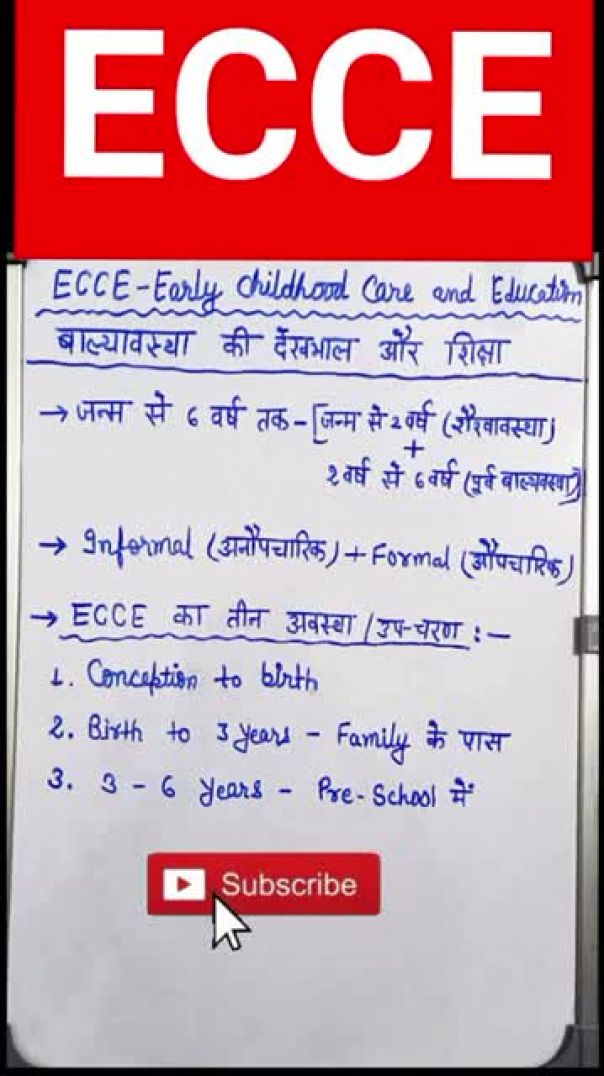 ECCE
ECCE-Early childhood Care and Education
बाल्यावस्था की देखभाल और शिक्षा
→ जन्म से 6 वर्ष तक - [जन्म से 2 वर्ष (शैशवावस्था)
+
2 वर्ष से 6 वर्ष (पूर्व बाल्यावस्था)]
→ Informal (अनौपचारिक) + Formal (औपचारिक)
→ ECCE का तीन अवस्था / उप-चरण :-
1. Conception to birth
2. Birth to 3 years - Family के पास
3. 3 - 6 years - Pre-School में
Subscribe